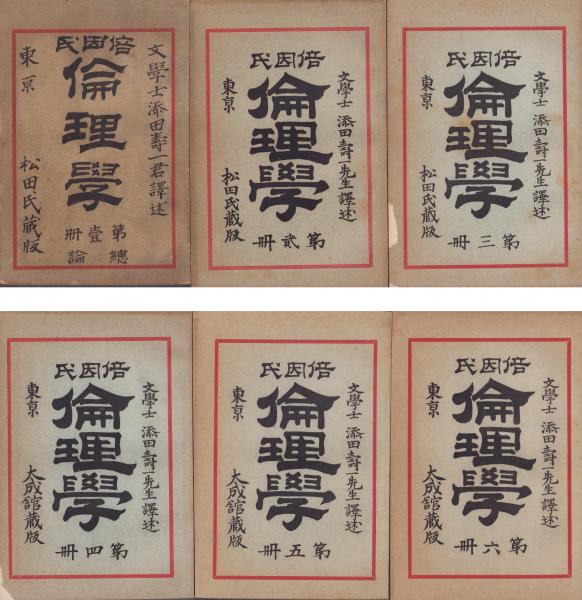 文學士添田壽一君譯述
倍因氏
倫理學
第壹冊
總論
東京
松田氏藏版
文學士 添田壽一先生譯述
倍因氏
倫理學
第貳冊
東京
松田氏藏版
文學士 添田壽一先生譯述
倍因氏
倫理學
第三冊
東京
松田氏藏版
文學士 添田壽一先生譯述
倍因氏
倫理學
第四冊
東京
大成館藏版
文學士 添田壽一先生譯述
倍因氏
倫理學
第五冊
東京
大成館藏版
文學士 添田壽一先生譯述
倍因氏
倫理學
第六冊
東京
大成館藏版